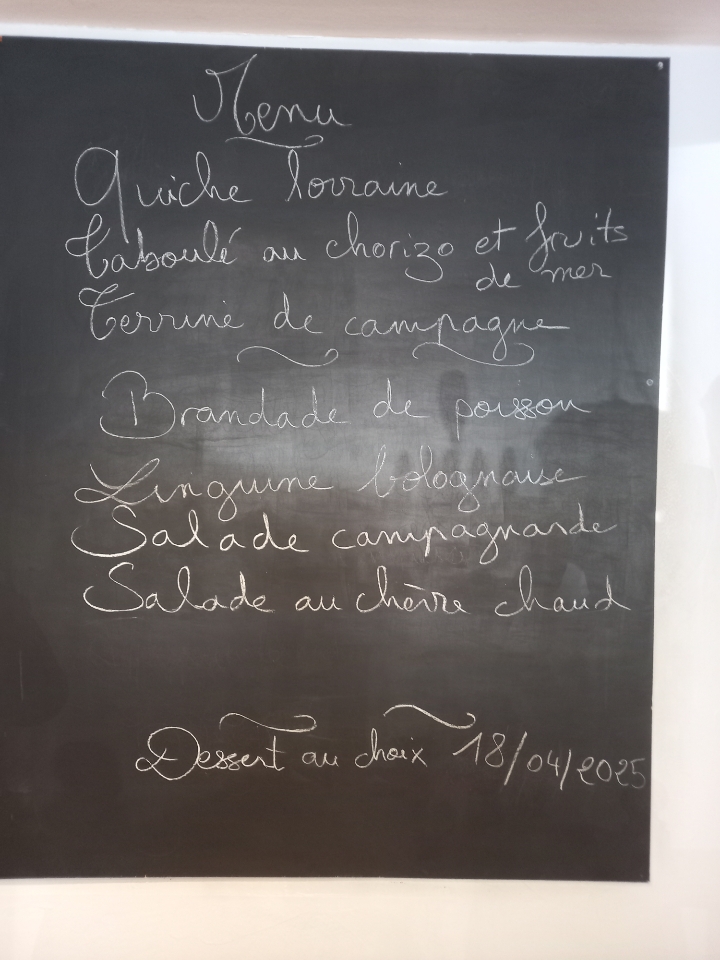 Menu
Quiche lorraine
Taboulé au chorizo et fruits
de mer
Terrine de campagne
Brandade de poisson
Linguine bolognaise
Salade campagnarde
Salade au chèvre chaud
Dessert au choix 18/04/2025